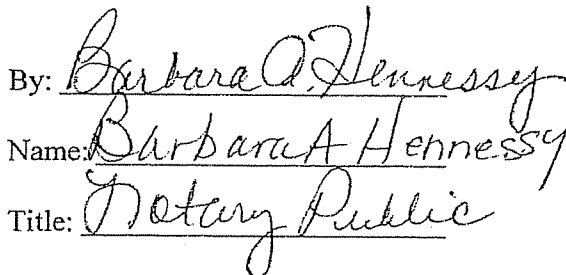 By: Barbara A. Hennessy
Name: Barbara A Hennessy
Title: Notary Public